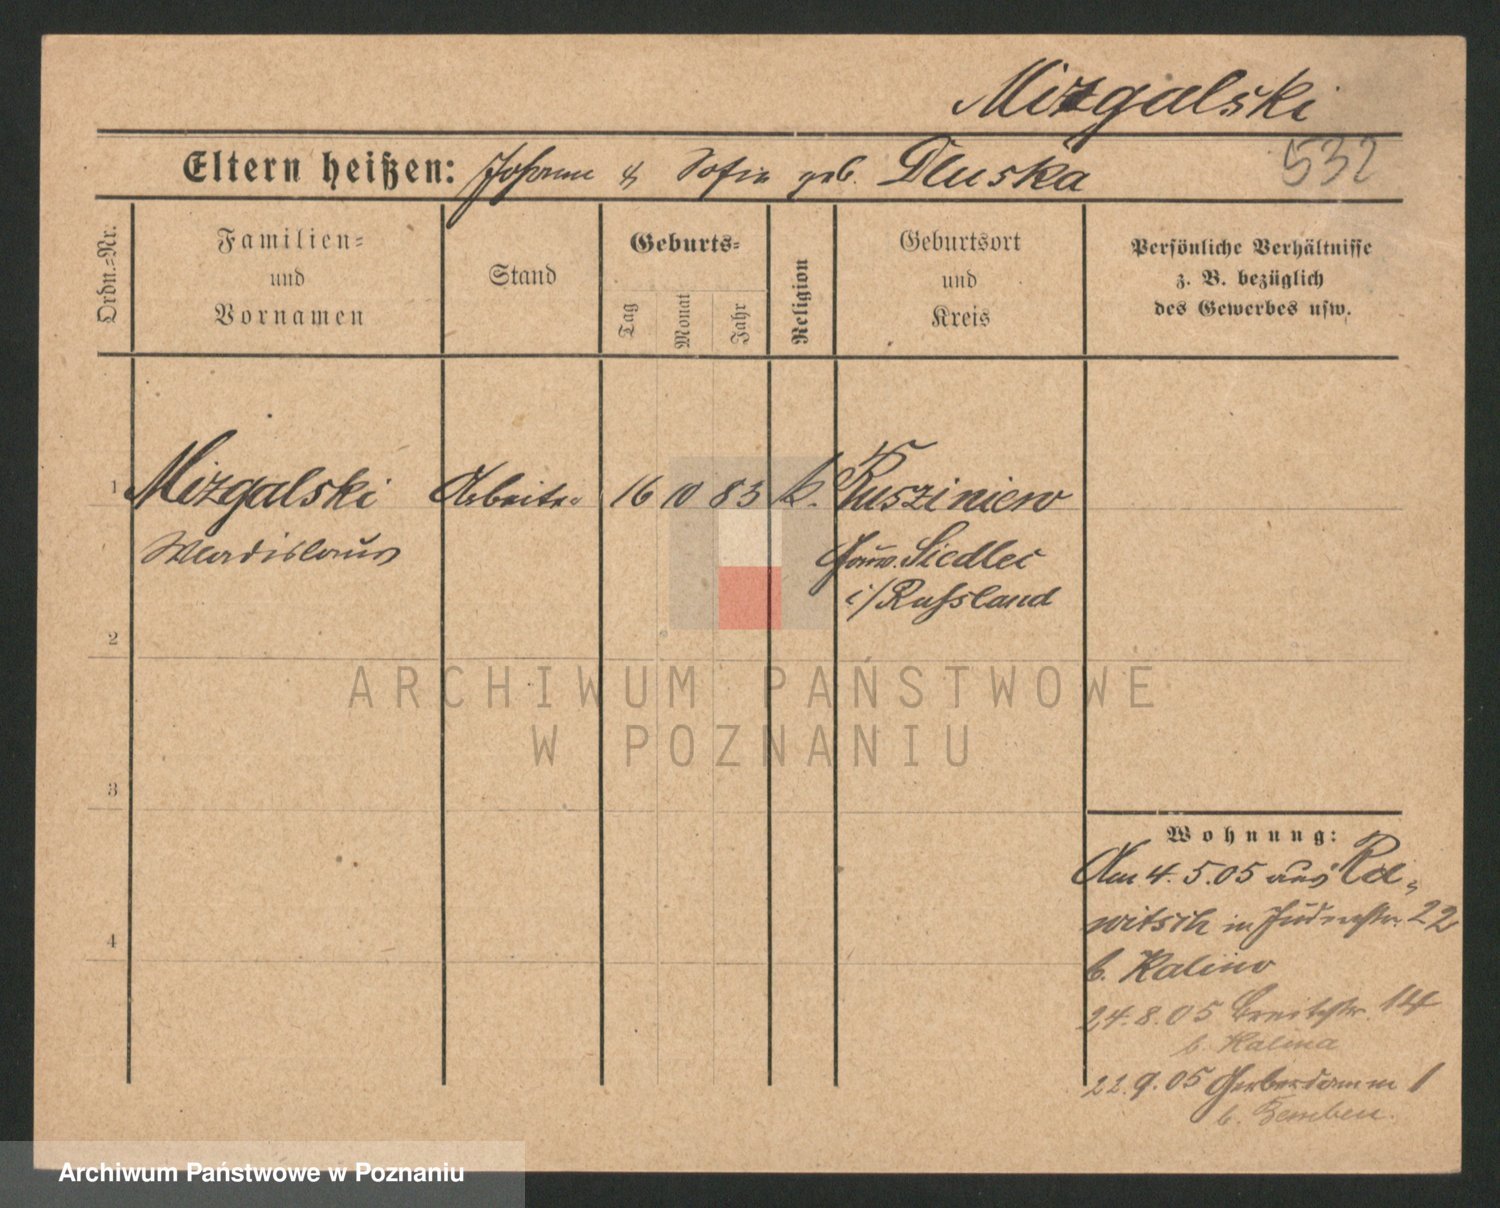 Mizgalski
532
Eltern heißen: Johann & Sofia geb. Dluska
Ordn.=Nr.
Familien=
und
Vornamen
Stand
Geburts=
Tag
Monat
Jahr
Religion
Geburtsort
und
Kreis
Persönliche Verhältnisse
z. B. bezüglich
des Gewerbes usw.
1 Mizgalski Arbeiter 16 10 83 k. Rusziniew
Wladislaus Gouv. Siedlec
i/Russland
2
3
4
ARCHIWUM PAŃSTWOWE
W POZNANIU
Wohnung:
Am 4.5.05 aus Ra-
witsch in Judenstr. 22
b. Kalino
24.8.05 Breitestr. 14
b. Kalina
22.9.05 Gerberdamm 1
b.
Archiwum Państwowe w Poznaniu